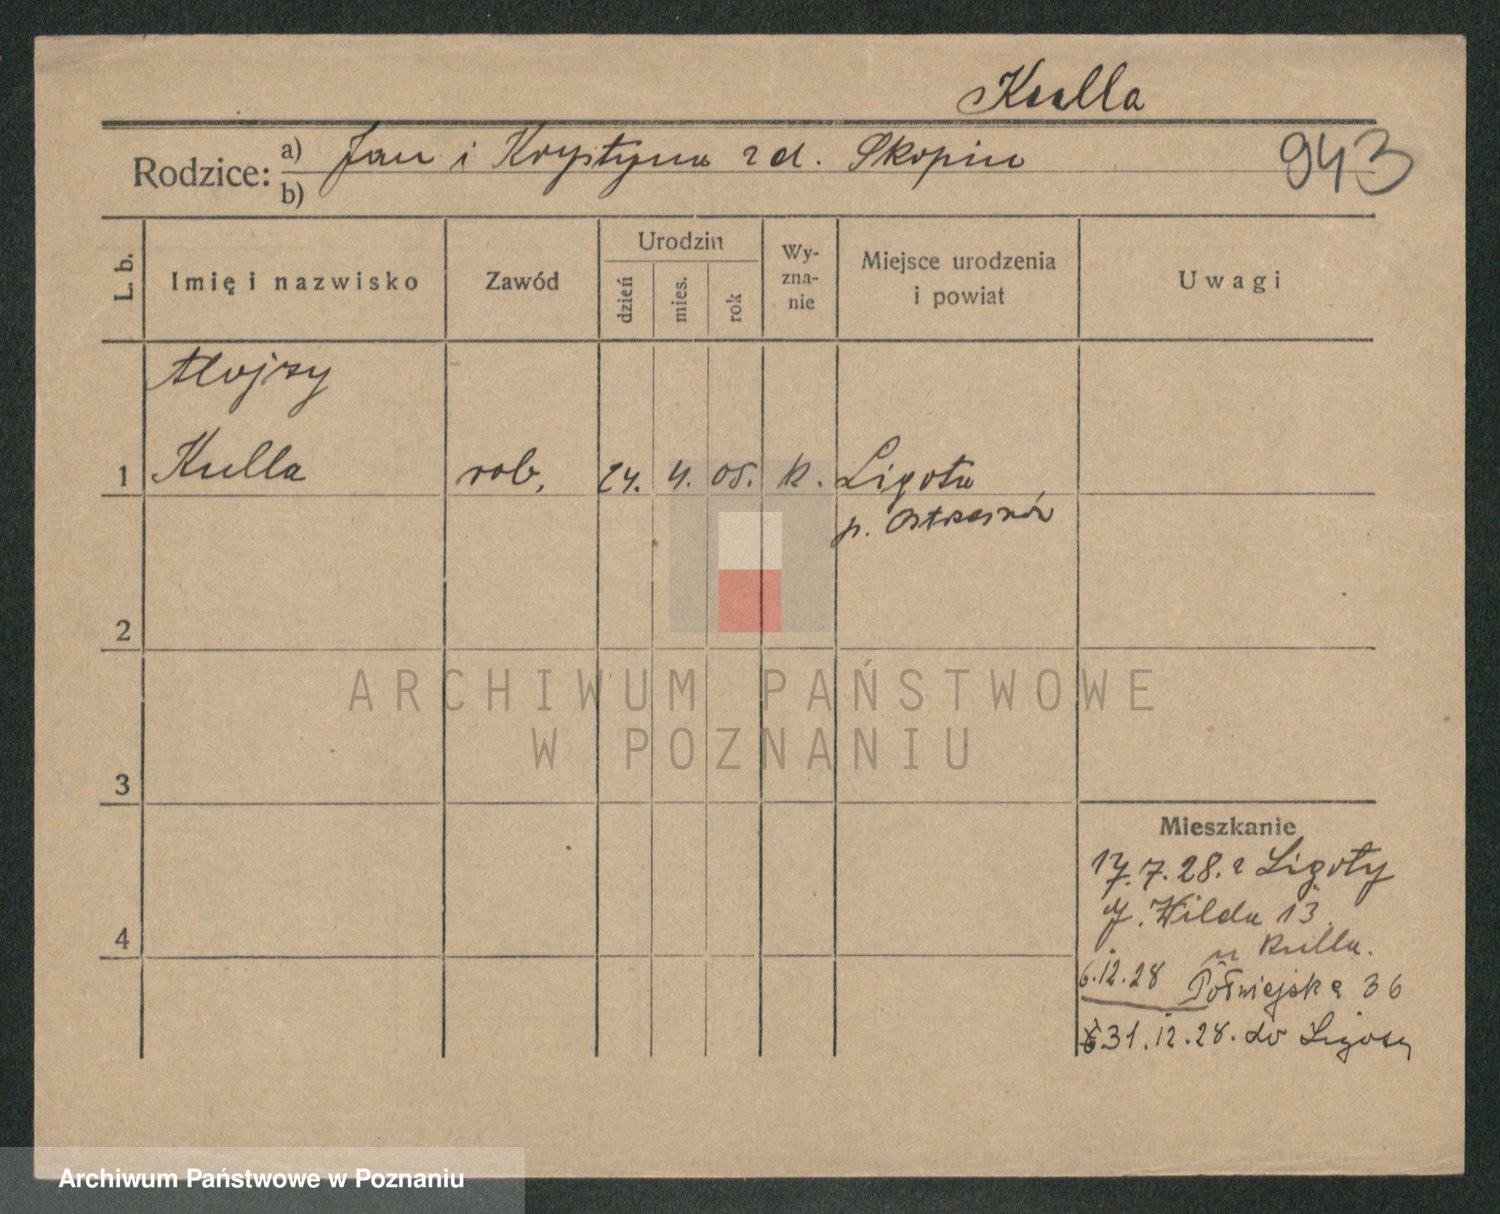 Kulla
Rodzice: a) Jan i Krystyna zd. Skopin
b)
943
L. b.
Imię i nazwisko
Zawód
Urodzin
dzień
mies.
rok
Wy-
zna-
nie
Miejsce urodzenia
i powiat
Uwagi
Alojzy
1 Kulla rob. 24. 4. 05. k. Ligota
p. Ostrzeszów
2
3
4
Mieszkanie
17.7.28. z Ligoty
Wilda 13
u Kulla.
6.12.28 Półwiejska 36
31.12.28. do Ligoty
ARCHIWUM PAŃSTWOWE
W POZNANIU
Archiwum Państwowe w Poznaniu